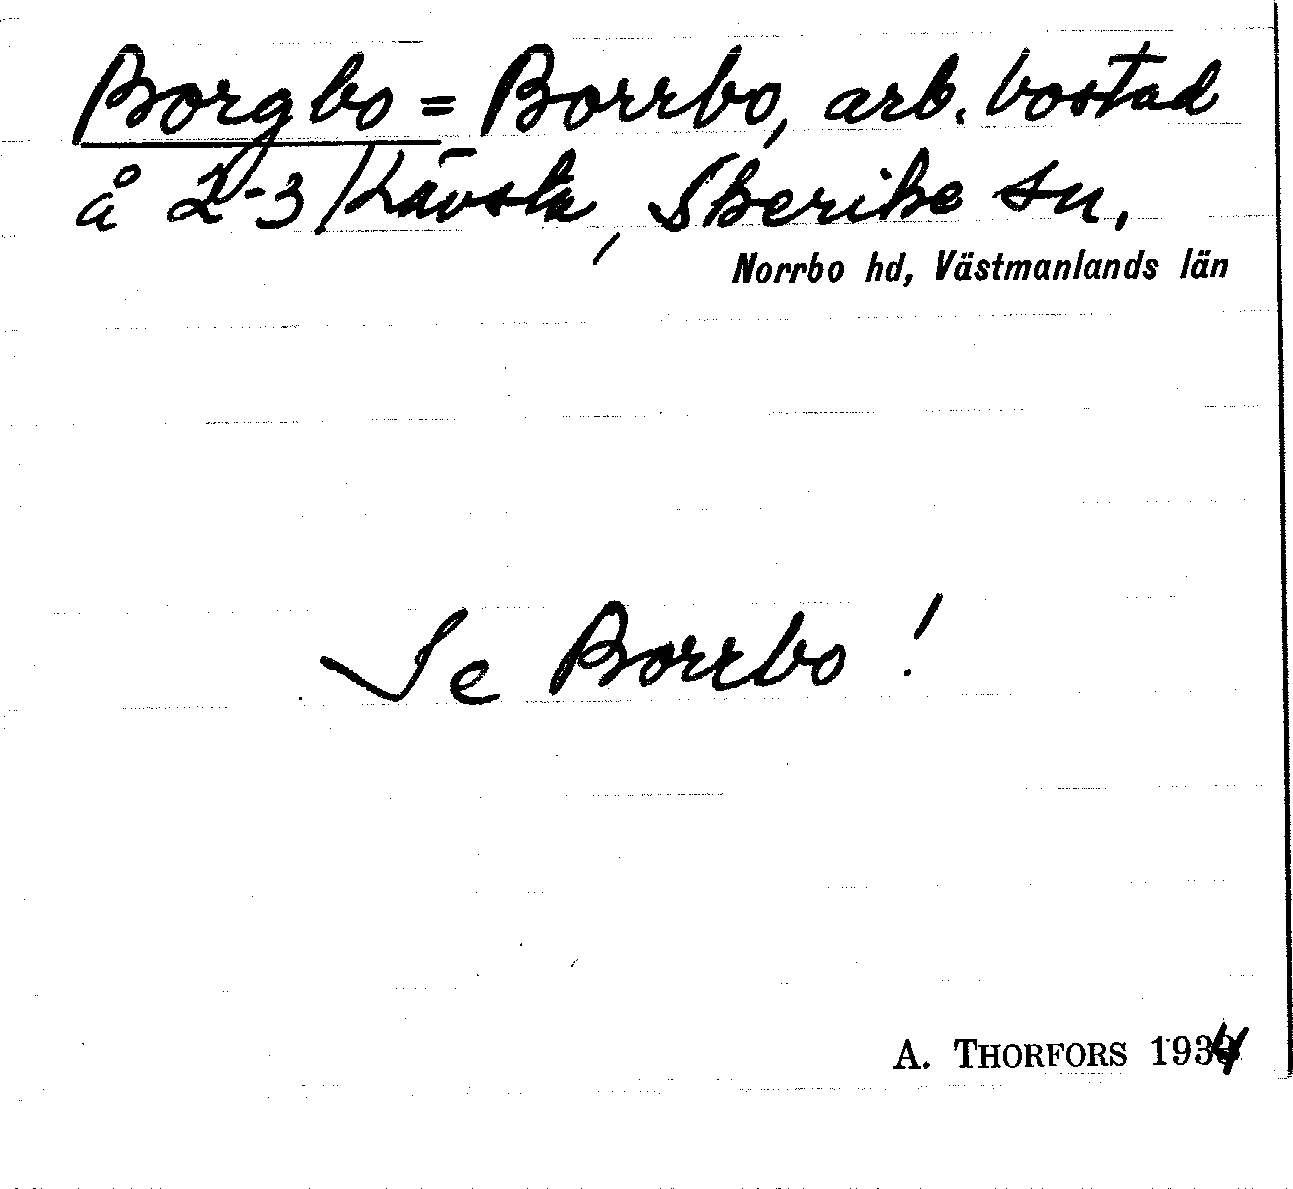 Borgbo = Borrbo, arb. bostad
å 2-3/Kävsta, Skerike sn,
Norrbo hd, Västmanlands län
Se Borrbo!
A. THORFORS 1934